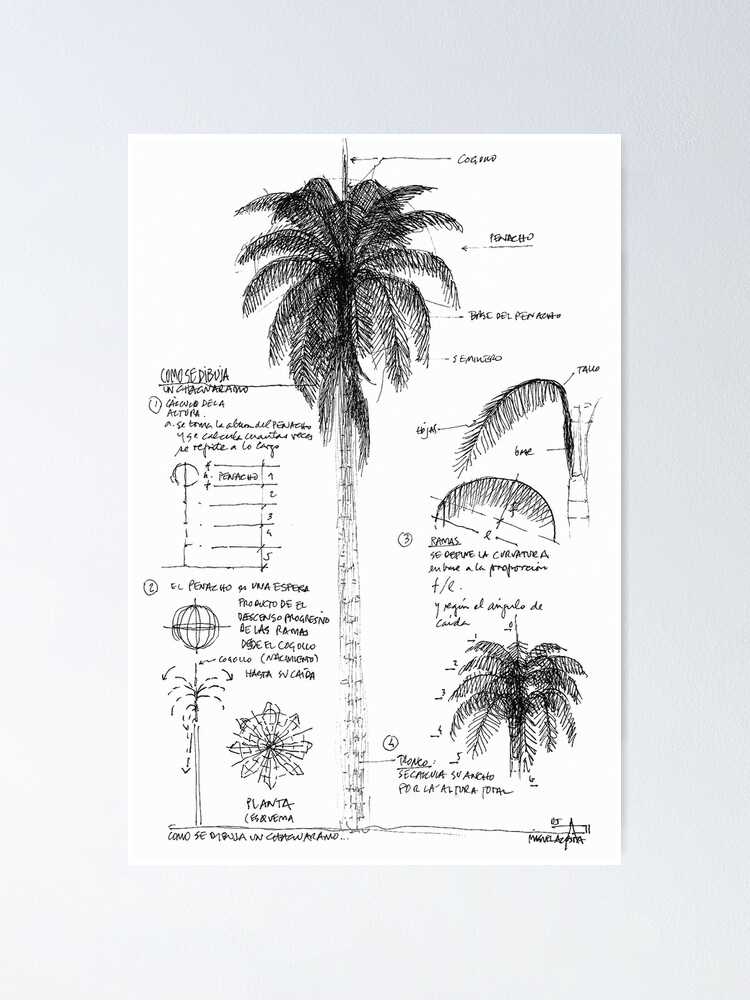 COGOLLO
PENACHO
BASE DEL PENACHO
SEMILLERO
COMO SE DIBUJA
UN CHAGUARAMO
1 CÁLCULO DE LA
ALTURA.
a. se toma la altura del PENACHO
y se calcula cuantas veces
se repite a lo largo
h. PENACHO 1
2
3
4
5
TALLO
HOJAS
BASE
f
l
3 RAMAS
SE DEFINE LA CURVATURA
en base a la proporción
f/l.
y según el ángulo de
caída
2 EL PENACHO es UNA ESFERA
PRODUCTO DE EL
DESCENSO PROGRESIVO
DE LAS RAMAS
DESDE EL COGOLLO
COGOLLO (NACIMIENTO)
HASTA SU CAÍDA
PLANTA
(ESQUEMA
0
1
2
3
4
5
6
4 TRONCO:
SE CALCULA SU ANCHO
POR LA ALTURA TOTAL
COMO SE DIBUJA UN CHAGUARAMO...
MIGUEL ACOSTA